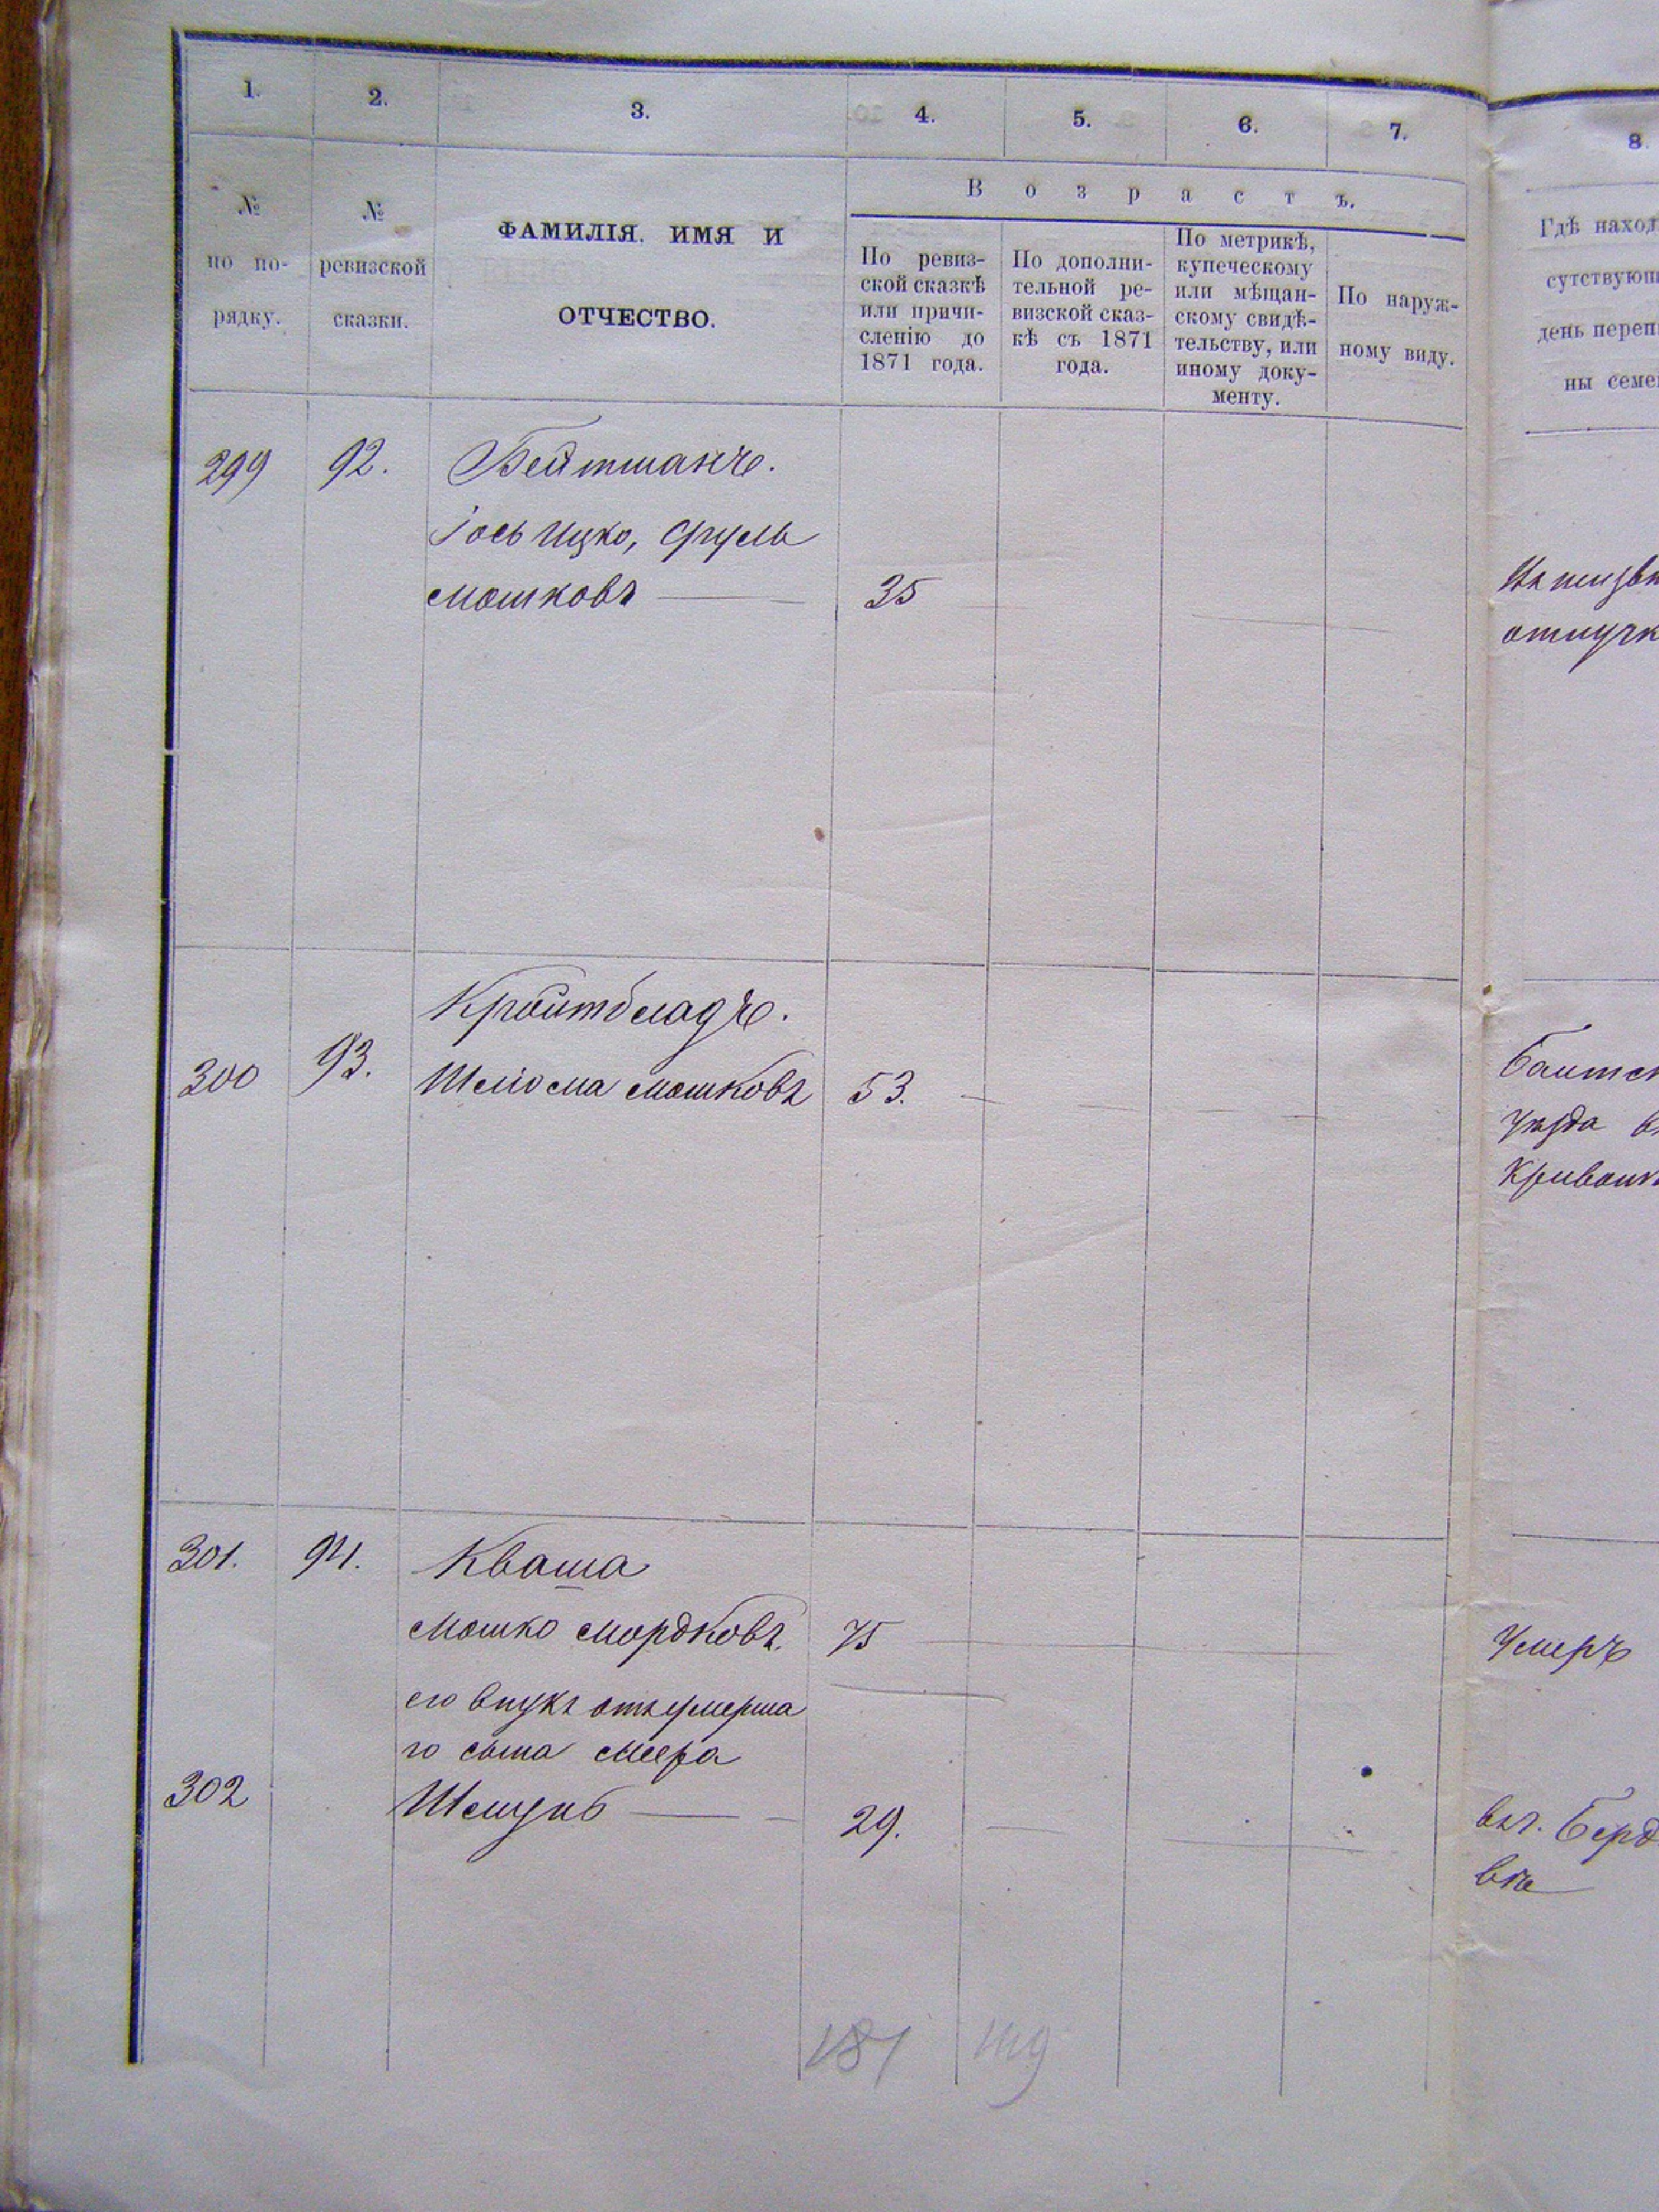 1. 2. 3. 4. 5. 6. 7. 8.
№ по по-рядку.
№ ревизской сказки.
ФАМИЛІЯ, ИМЯ И
ОТЧЕСТВО.
Возрастъ.
По ревиз-
ской сказкѣ
или причи-
сленію до
1871 года.
По дополни-
тельной ре-
визской сказ-
кѣ съ 1871
года.
По метрикѣ,
купеческому
или мѣщан-
скому свидѣ-
тельству, или
иному доку-
менту.
По наруж-
ному виду.
Гдѣ наход
сутствующ
день переп
ны семе
299 92. Бейтманъ.
Іось Ицко, Сруль
Мошковъ 35
отпуск
Кройтбладъ.
300 93. Шліома Мошковъ 53.
Балтск
уѣзда в
Кривоик
301. 94. Кваша
Мошко Мордковъ. 75 Умеръ
его внукъ отъ умерша
го сына Меера
302 Шмуль 29.
въ г. Берд
187